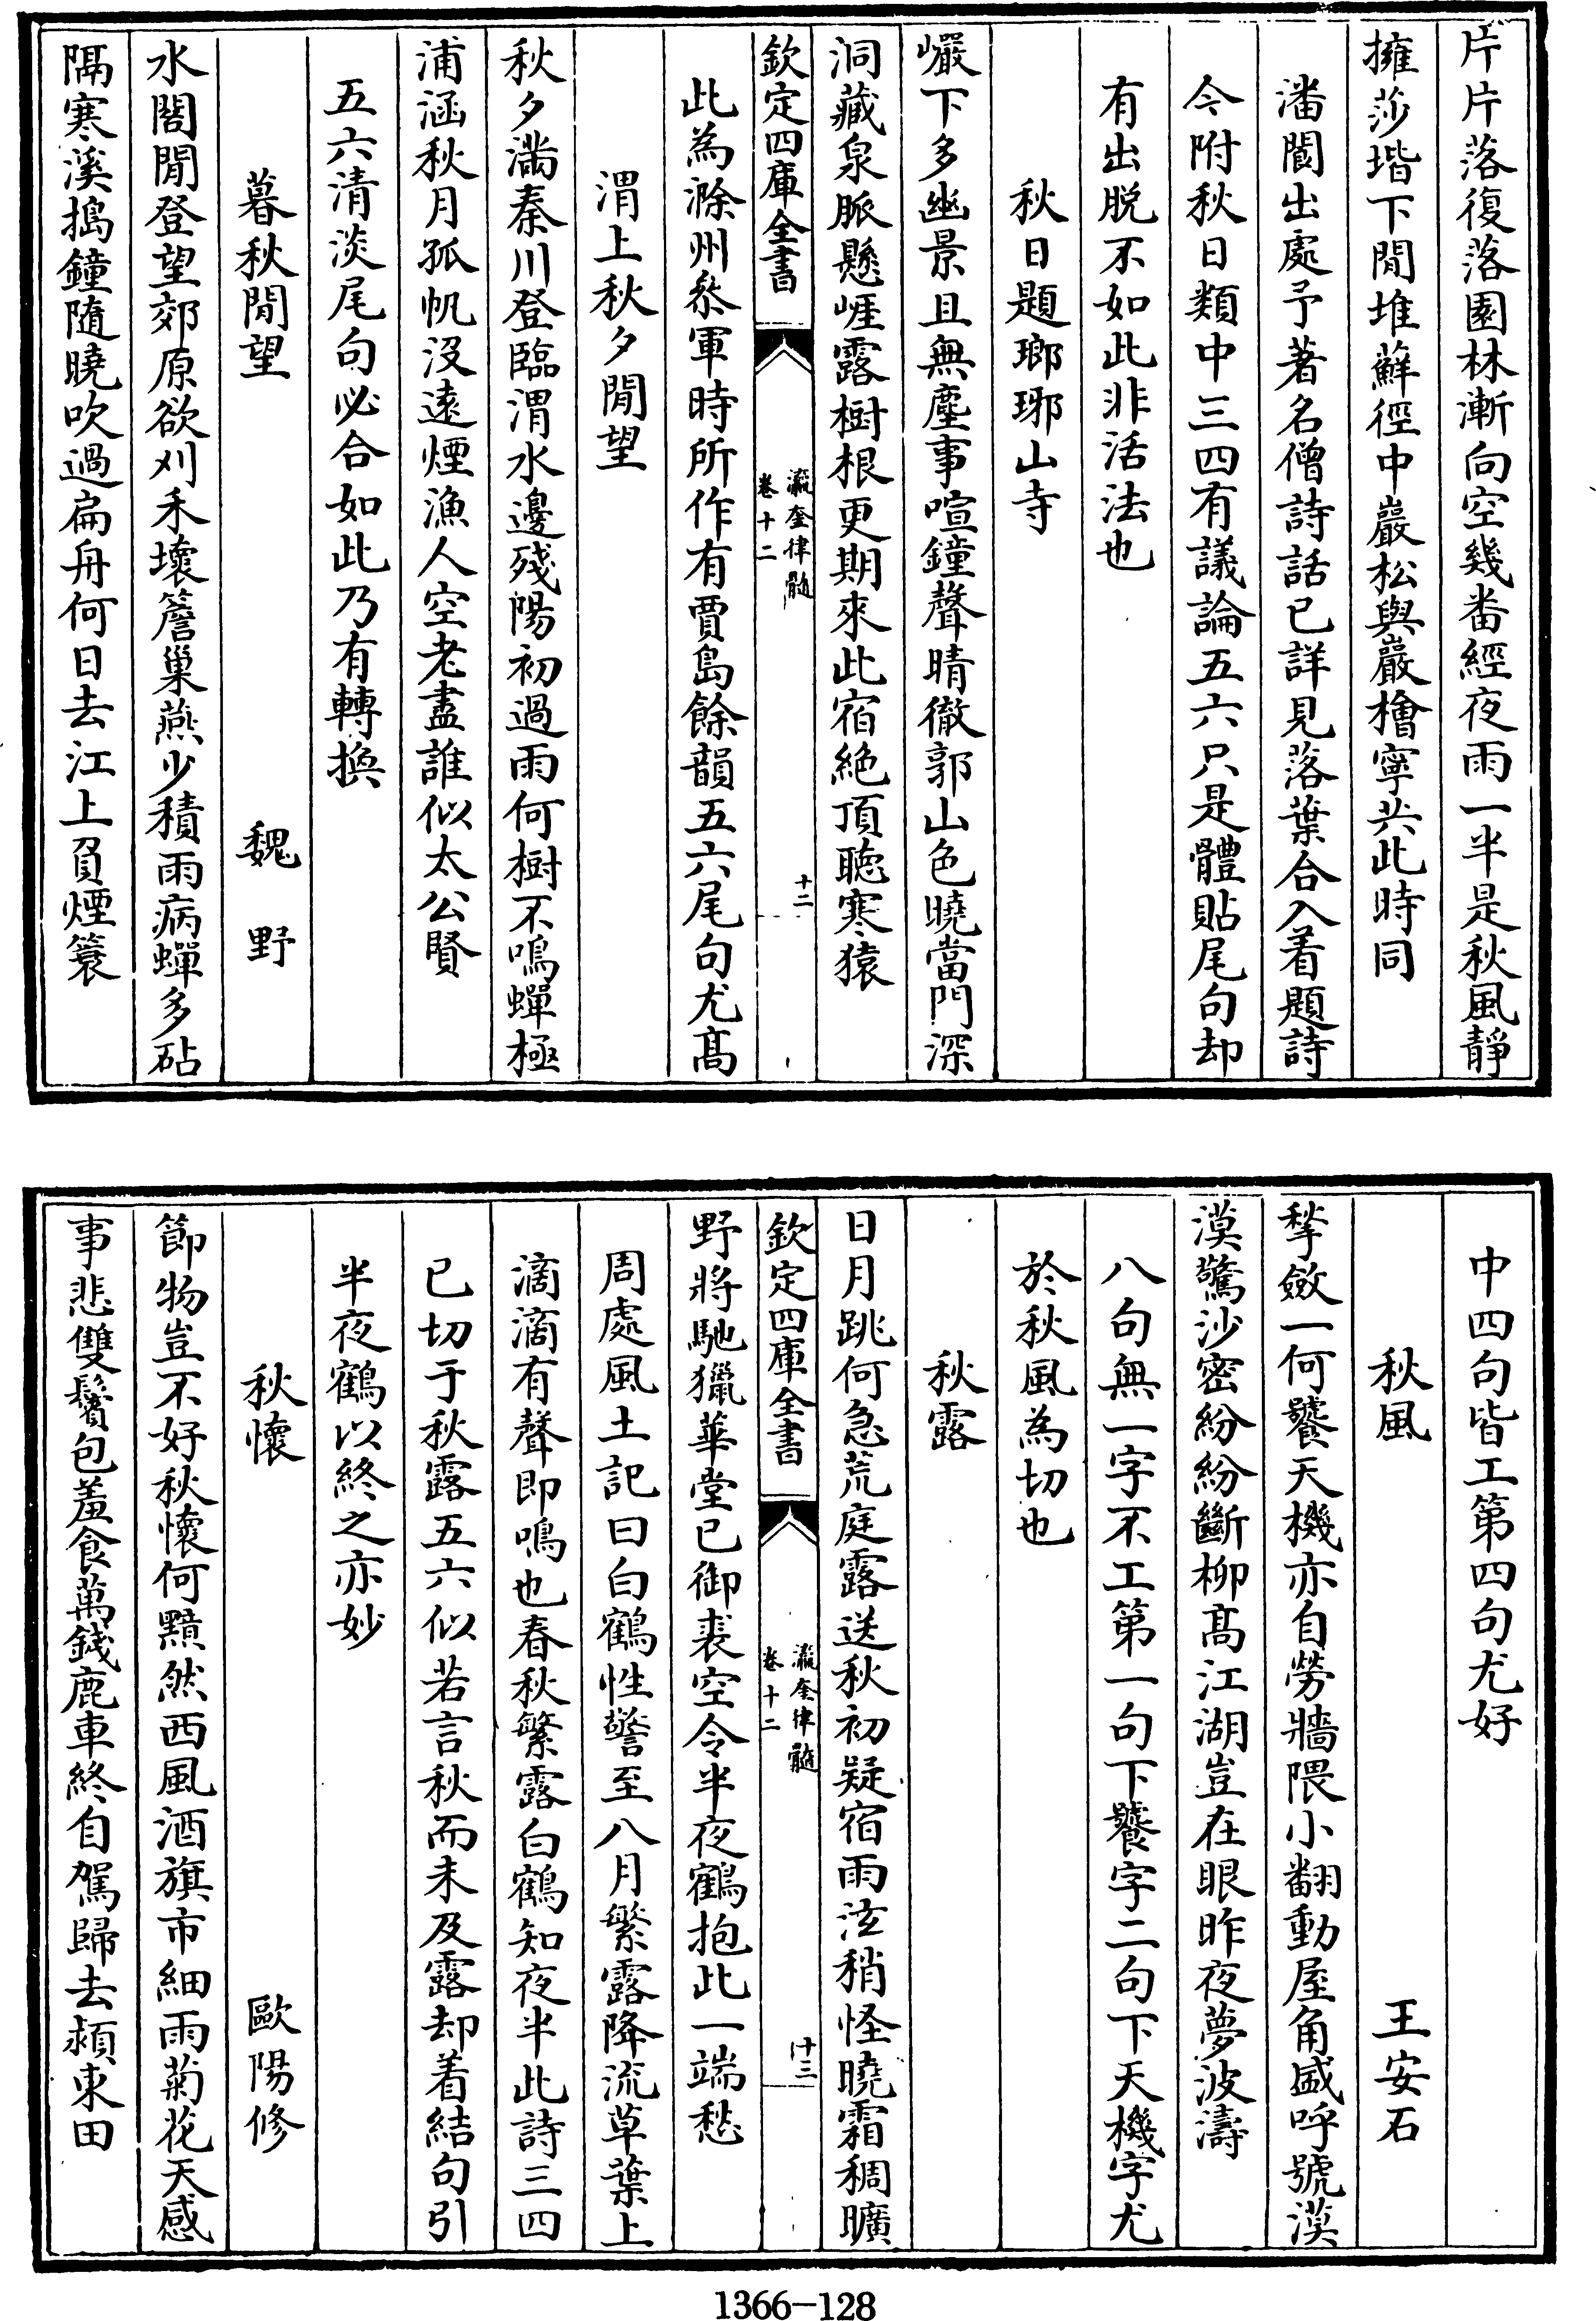 片片落復落園林漸向空幾番經夜雨一半是秋風靜
擁莎堦下閒堆蘚徑中巖松與巖檜寧共此時同
潘閬出處予著名僧詩話已詳見落葉合入着題詩
今附秋日類中三四有議論五六只是體貼尾句却
有出脫不如此非活法也
秋日題瑯琊山寺
巗下多幽景且無塵事喧鐘聲晴徹郭山色曉當門深
洞藏泉脈懸崕露樹根更期來此宿絶頂聽寒猿
欽定四庫全書
瀛奎律髓
卷十二
十二
此為滁州叅軍時所作有賈島餘韻五六尾句尤髙
渭上秋夕閒望
秋夕滿秦川登臨渭水邊殘陽初過雨何樹不鳴蟬極
浦涵秋月孤帆沒遠煙漁人空老盡誰似太公賢
五六清淡尾句必合如此乃有轉換
暮秋閒望 魏野
水閣閒登望郊原欲刈禾壞簷巢燕少積雨病蟬多砧
隔寒溪搗鐘隨曉吹過扁舟何日去江上負煙簑
中四句皆工第四句尤好
秋風 王安石
揫斂一何饕天機亦自勞牆隈小翻動屋角盛呼號漠
漠驚沙密紛紛斷柳髙江湖豈在眼昨夜夢波濤
八句無一字不工第一句下饕字二句下天機字尤
於秋風為切也
秋露
日月跳何急荒庭露送秋初疑宿雨泫稍怪曉霜稠曠
野將馳獵華堂已御裘空令半夜鶴抱此一端愁
欽定四庫全書
瀛奎律髓
卷十二
十三
周處風土記曰白鶴性警至八月繁露降流草葉上
滴滴有聲即鳴也春秋繁露白鶴知夜半此詩三四
已切于秋露五六似若言秋而未及露却着結句引
半夜鶴以終之亦妙
秋懷 歐陽修
節物豈不好秋懷何黯然西風酒旗市細雨菊花天感
事悲雙鬢包羞食萬錢鹿車終自駕歸去潁東田
1366-128